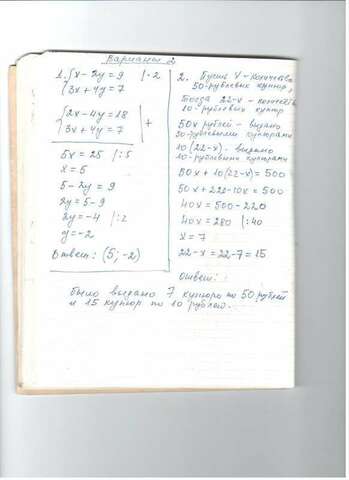 Вариант 2
1. { x - 2y = 9 | · 2
{ 3x + 4y = 7
{ 2x - 4y = 18
{ 3x + 4y = 7 | +
5x = 25 | : 5
x = 5
5 - 2y = 9
2y = 5 - 9
2y = -4 | : 2
y = -2
Ответ: (5; -2)
2. Пусть х - количество
50-рублевых купюр,
Тогда 22-х - количеств
10-рублевых купюр
50х рублей - выдано
50-рублевыми купюрами
10(22-х) - выдано
10-рублевыми купюрами
50х + 10(22-х) = 500
50х + 220 - 10х = 500
40х = 500 - 220
40х = 280 | : 40
х = 7
22 - х = 22 - 7 = 15
Ответ:
было выдано 7 купюр по 50 рублей
и 15 купюр по 10 рублей.